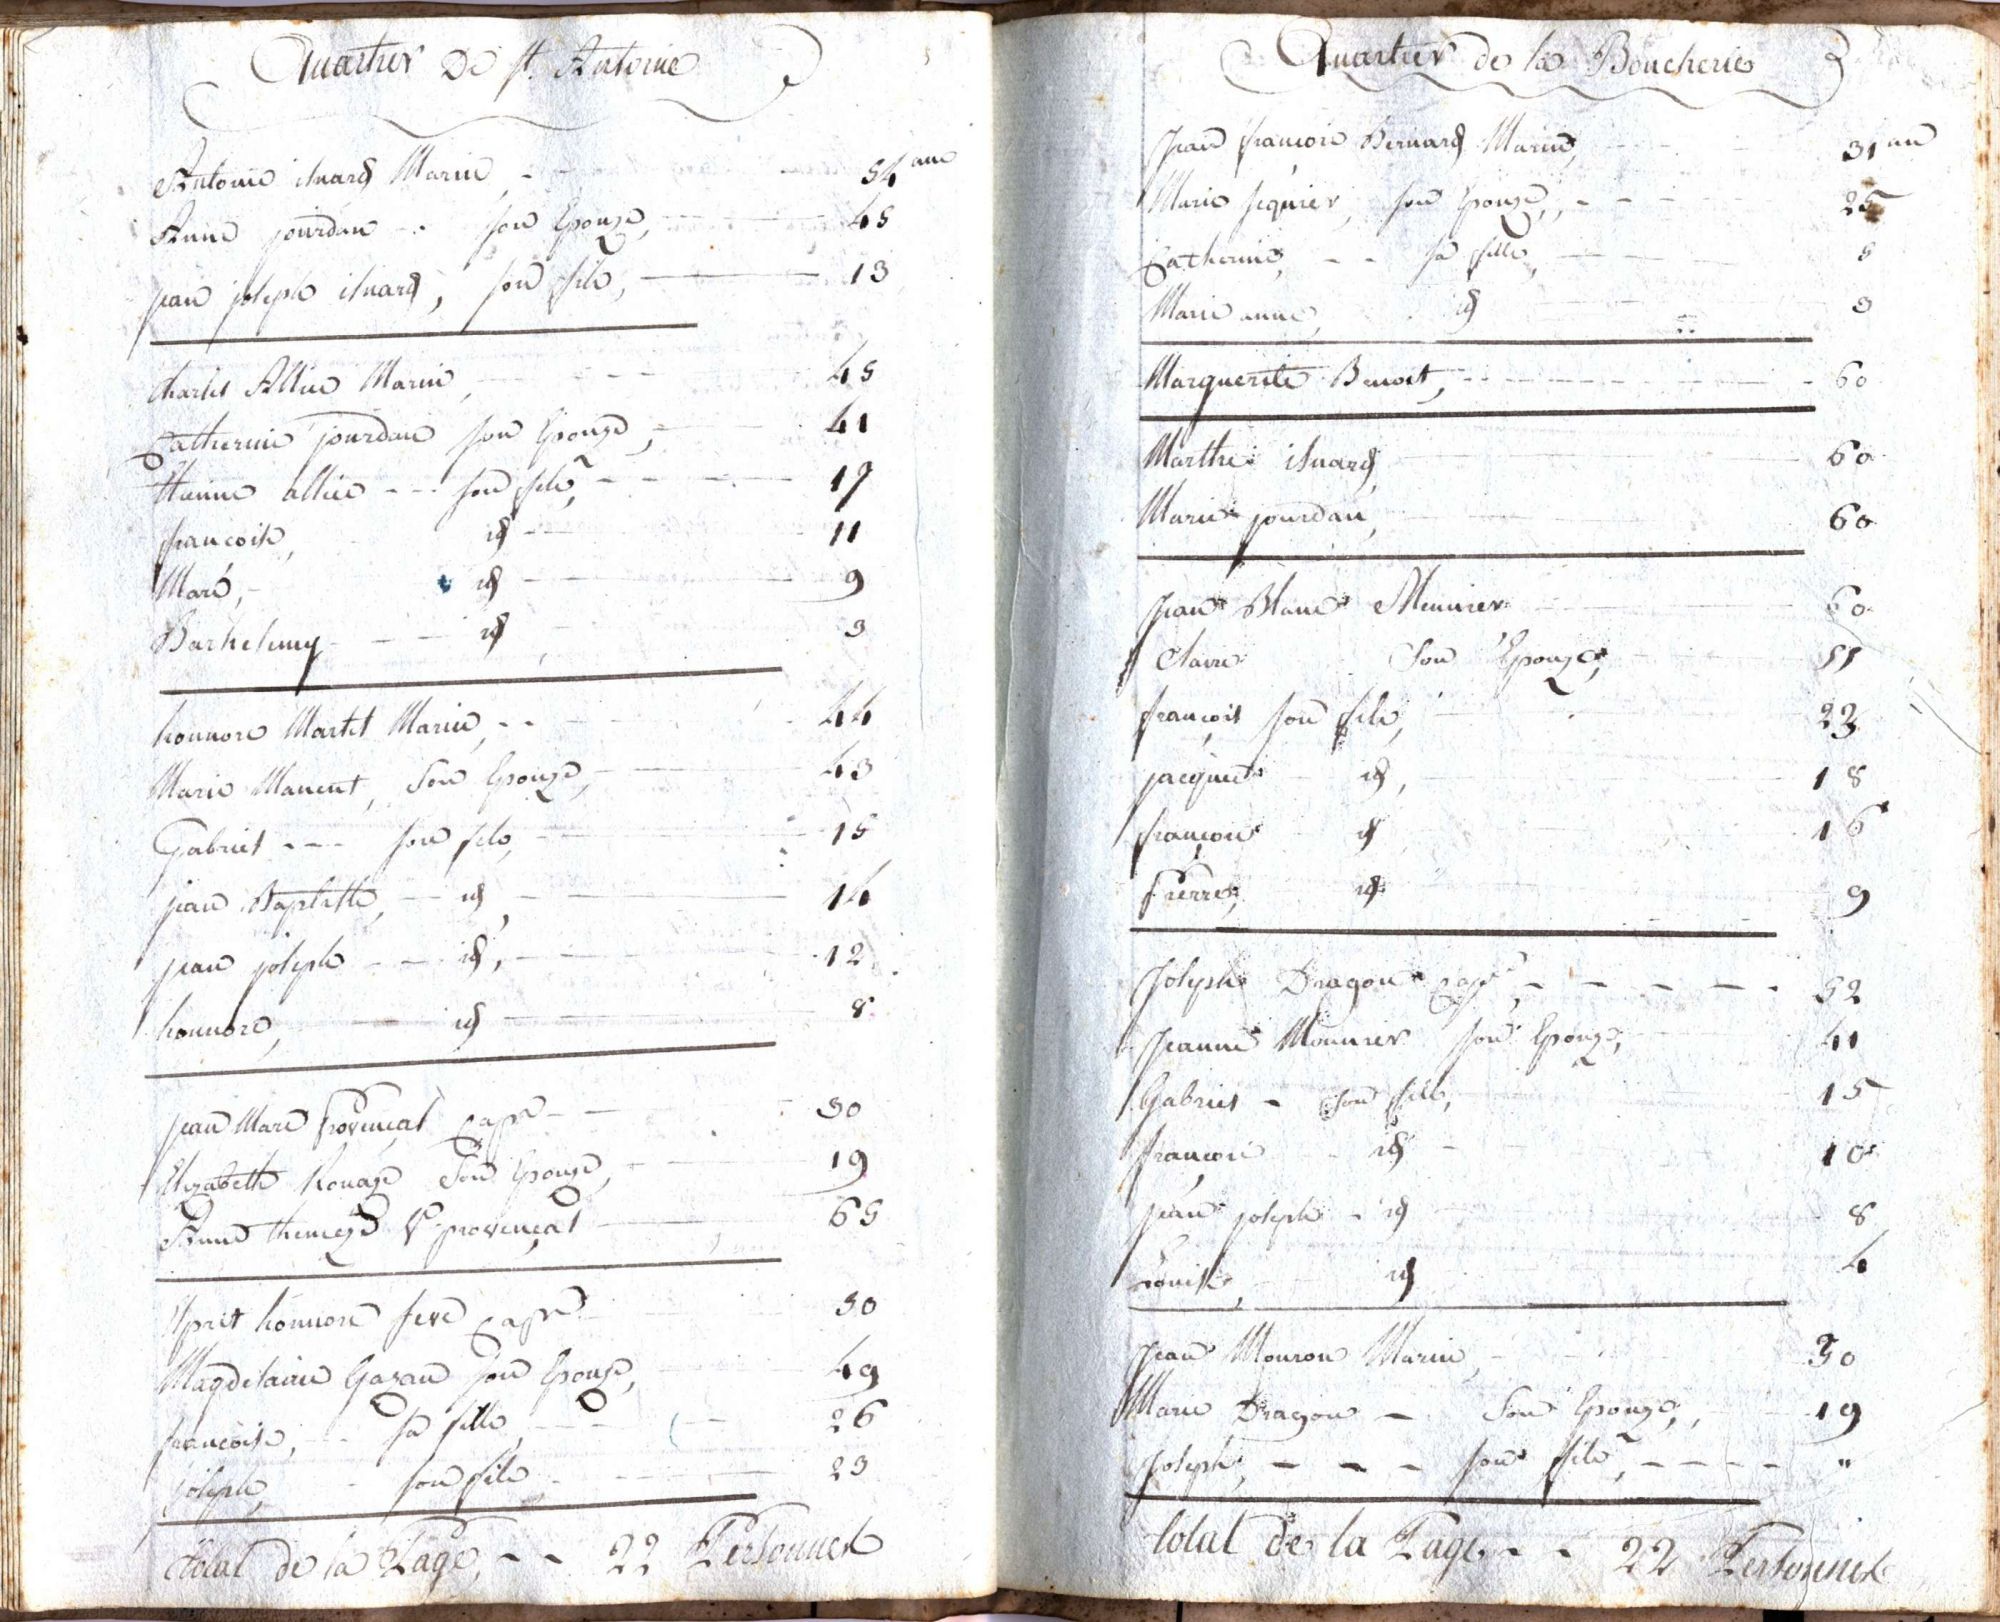 Quartier De st. Antoine
Antoine isnard Marin, - - 54 ans
Anne jourdan - - son Epouze, 45
jean joseph isnard, son fils, 13
Charles Allie Marin, 45
Catherine jourdan son Epouze, 41
Etienne allie - - - son fils, 17
françois, id 11
Marc, id 9
Barthelemy id 3
honnore Martel Marin, - - 44
Marie Manent, Son Epouze, 43
Gabriel - - - son fils, 15
jean Baptiste, id, 14
jean joseph - - id, 12
honnore, id 8
jean Marc provençal cap.ne 30
Elizabeth Rouaze Son Epouze, 19
Anne themeze Ve provençal 65
Esprit honnore feve cap.ne 50
Magdelaine Gazan son Epouze, 49
françoise, sa fille, 26
joseph, son fils, 23
total de la Page, - - 22 Personnes
Quartier de la Boucherie
Jean françois Bernard Marin, 31 an
Marie sequier, son Epouze, 25
Catherine, - - sa fille, 5
Marie anne, id 3
Marguerite Benoit, 60
Marthe isnard, 60
Marie jourdan, 60
Jean Blanc Meunier 60
Claire Son Epouze, 55
françois son fils, 23
jacques id, 18
françois id 16
Pierre, id 9
Joseph Dragon cap.ne, - - - - - 52
Jeanne Mounier son Epouze, 41
Gabriel - son fils, 15
françois id 10
jean joseph - id 8
Louise, id 4
Jean Mouron Marin, 30
Marie Dragon - Son Epouze, 19
Joseph, - - - son fils, - - - - "
total de la Page - - 22 Personnes